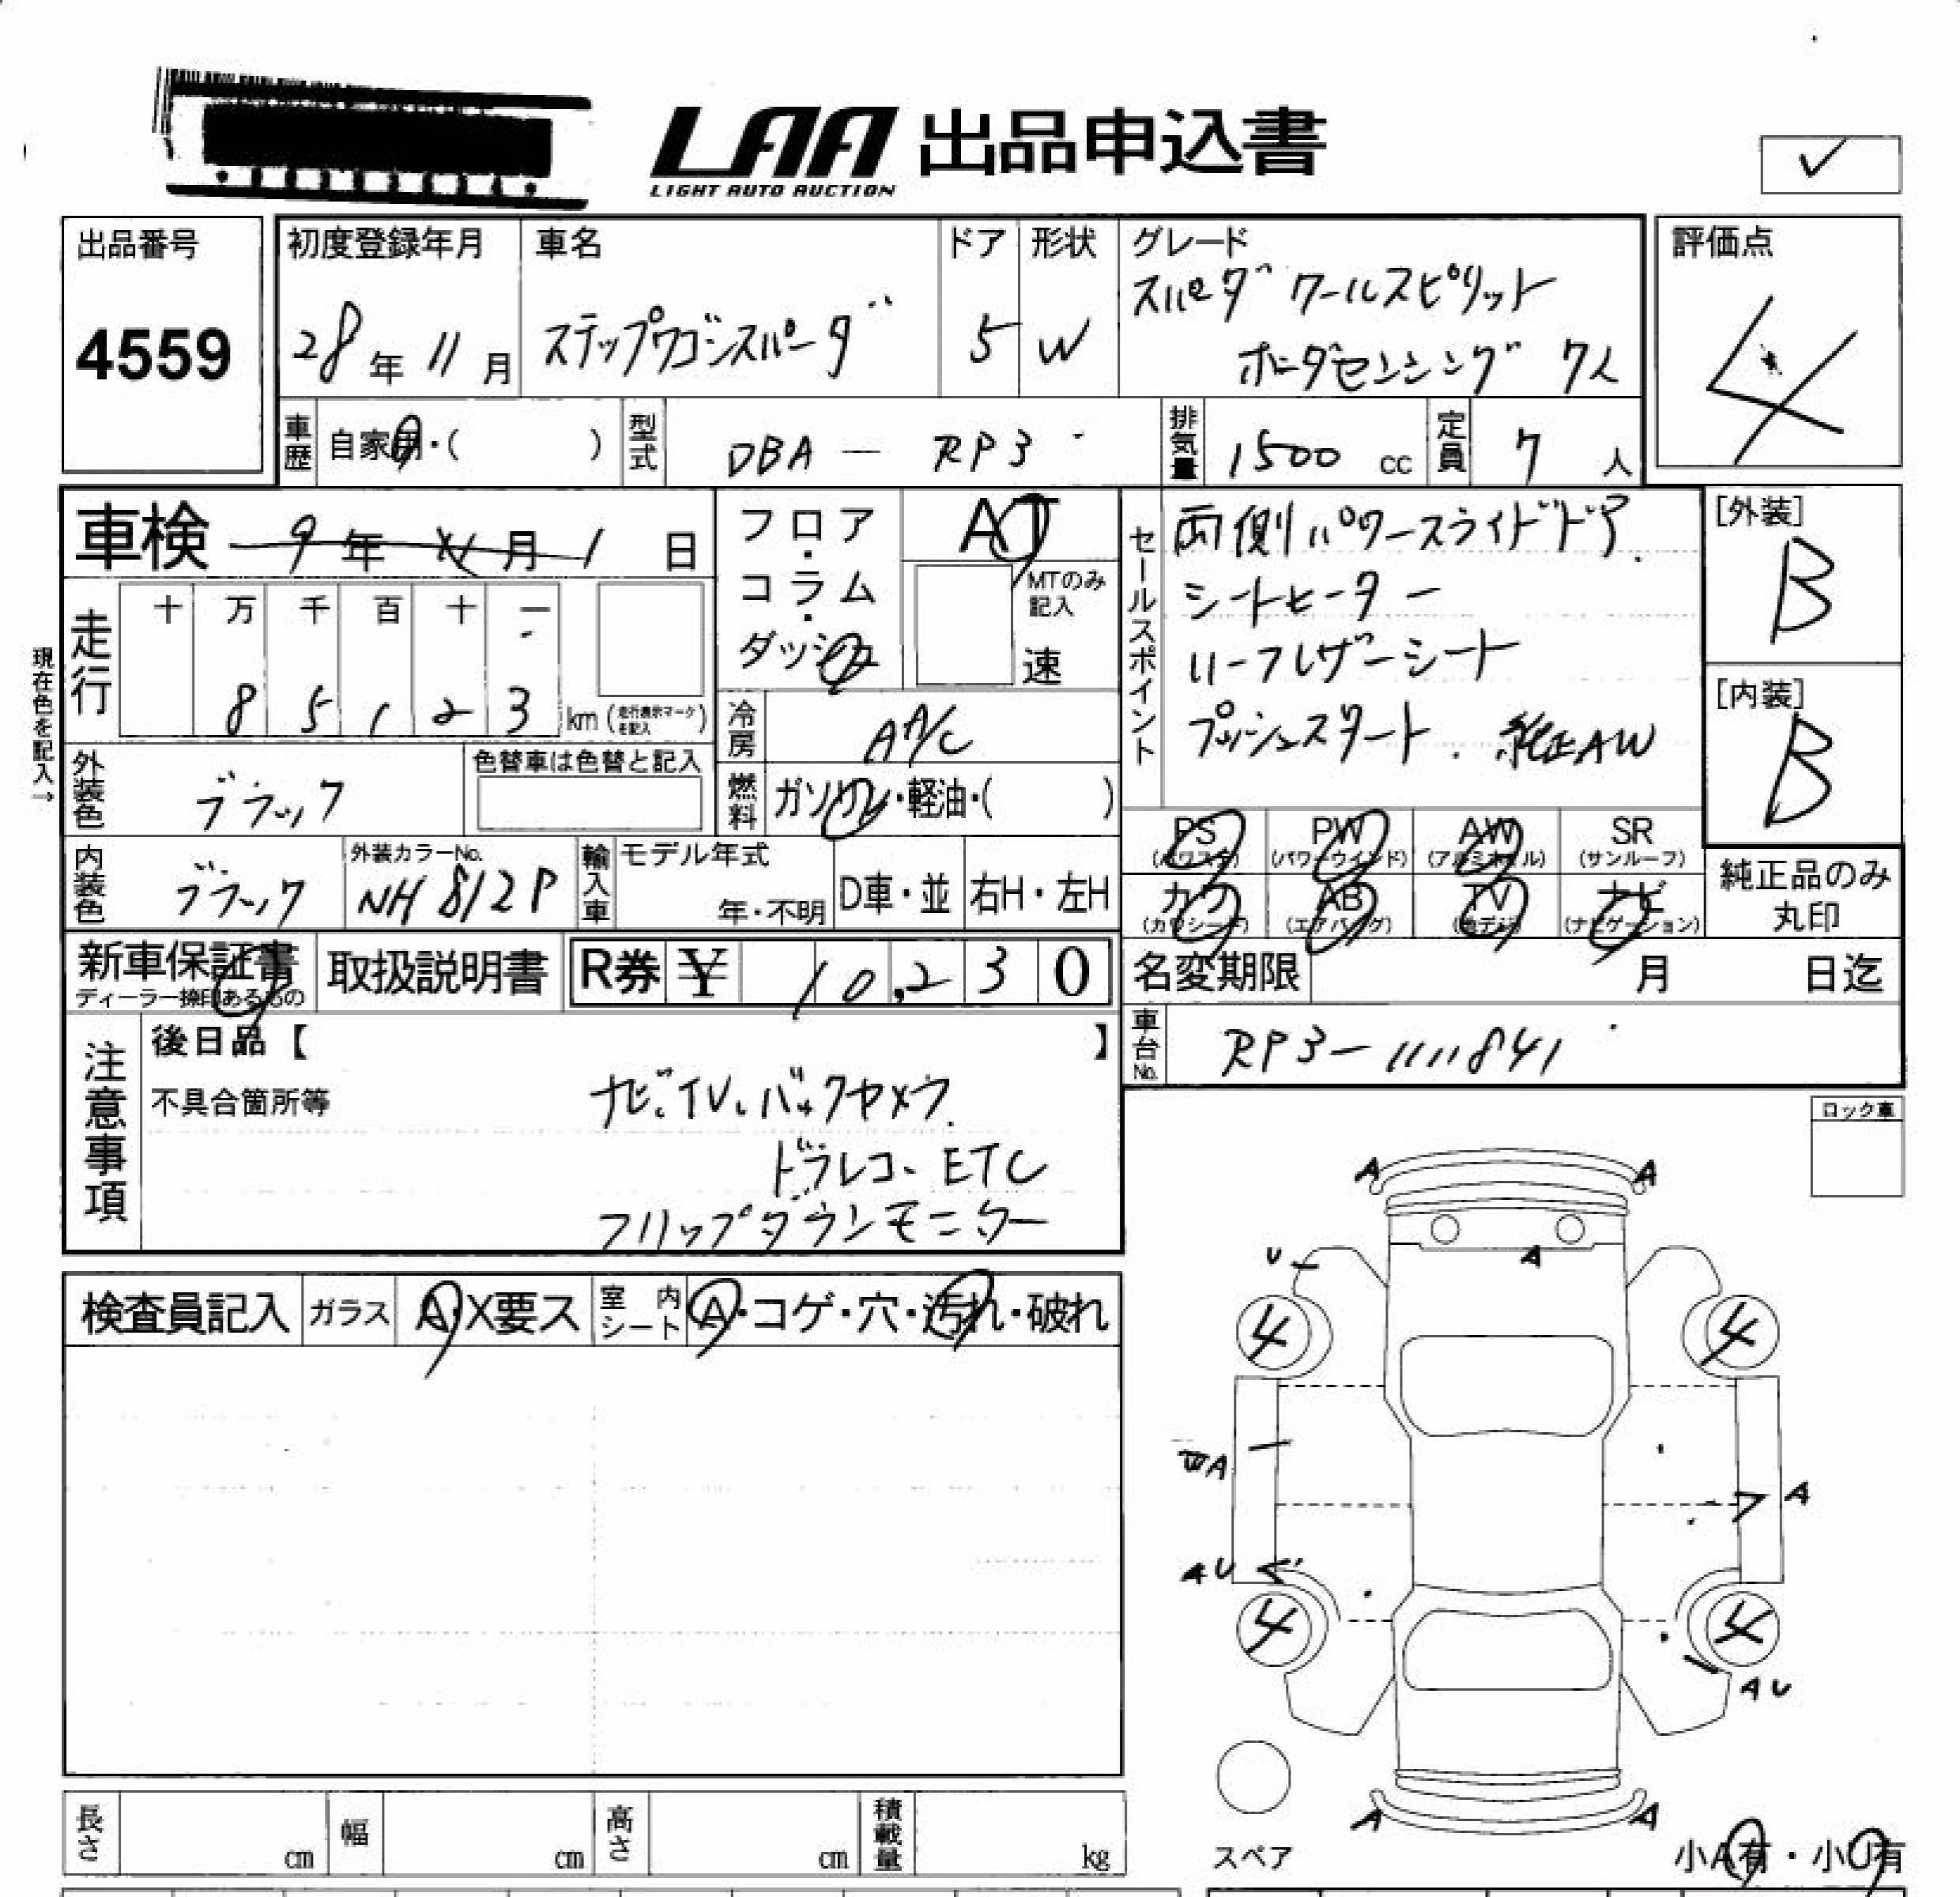 LAA 出品申込書
LIGHT AUTO AUCTION
✓
出品番号
4559
初度登録年月
28年 11月
車名
ステップワゴンスパーダ
ドア
5
形状
W
グレード
スパーダ クールスピリット
ホンダセンシング 7人
評価点
4
車歴
自家用・( )
型式
DBA — RP3
排気量
1500 cc
定員
7 人
車検 9年 11月 1日
フロア・コラム・ダッシュ
AT
MTのみ記入
速
走行
十 万 千 百 十 一
8 5 1 2 3 km (走行表示マークを記入)
現在色を記入→
冷房
AA/C
外装色
ブラック
色替車は色替と記入
燃料
ガソリン・軽油・( )
内装色
ブラック
外装カラーNo.
NH812P
輸入車
モデル年式
年・不明
D車・並
右H・左H
セールスポイント
両側パワースライドドア
シートヒーター
ハーフレザーシート
プッシュスタート. 純正AW
[外装]
B
[内装]
B
PS (パワステ)
PW (パワーウインド)
AW (アルミホイル)
SR (サンルーフ)
カワ (カワシート)
AB (エアバッグ)
TV (地デジ)
ナビ (ナビゲーション)
純正品のみ丸印
新車保証書
ディーラー捺印あるもの
取扱説明書
R券 ¥ 10,230
名変期限 月 日迄
車台No.
RP3-1111841
注意事項
後日品【 】
不具合箇所等
ナビ、TV、バックカメラ
ドラレコ、ETC
フリップダウンモニター
ロック車
検査員記入
ガラス
A・X要ス
室内シート
A・コゲ・穴・汚れ・破れ
A A
U A
4 4
A
A
AU
4 4
AU
A A
スペア
小A有・小U有
長さ cm
幅 cm
高さ cm
積載量 kg